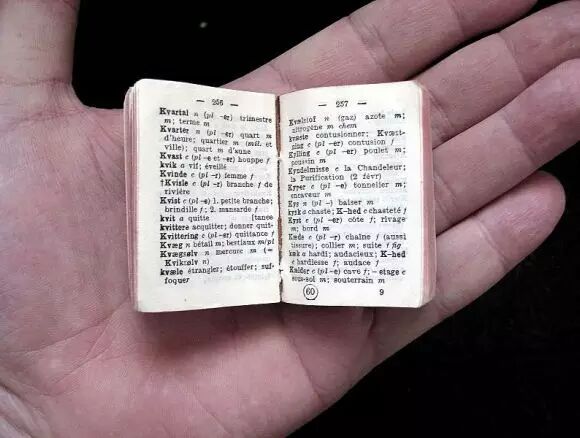 — 256 —
Kvartal n (pl -er) trimestre
m; terme m
Kvarter n (pl -er) quart m
d'heure; quartier m (mil. et
ville); quart m d'une
Kvast c (pl -e et -er) houppe f
kvik a vif; éveillé
Kvinde c (pl -r) femme f
†Kvisle c (pl -r) branche f de
rivière
Kvist c (pl -e) 1. petite branche;
brindille f; 2. mansarde f
kvit a quitte [tance
kvittere acquitter; donner quit-
Kvittering c (pl -er) quittance f
Kvæg n bétail m; bestiaux m/pl
Kvægsølv n mercure m (=
Kviksølv n)
kvæle étrangler; étouffer; suf-
foquer
— 257 —
Kvælstof n (gaz) azote m;
nitrogène m chem
kvæste contusionner; Kvæst-
ning c (pl -er) contusion f
Kylling c (pl -er) poulet m;
poussin m
Kyndelmisse c la Chandeleur;
la Purification (2 févr)
Kyper c (pl -e) tonnelier m;
encaveur m
Kys n (pl -) baiser m
kysk a chaste; K-hed c chasteté f
Kyst c (pl -er) côte f; rivage
m; bord m
Kæde c (pl -r) chaîne f (aussi
tissure); collier m; suite f fig
kæk a hardi; audacieux; K-hed
c hardiesse f; audace f
Kælder c (pl -e) cave f; - etage c
sous-sol m; souterrain m
60 9